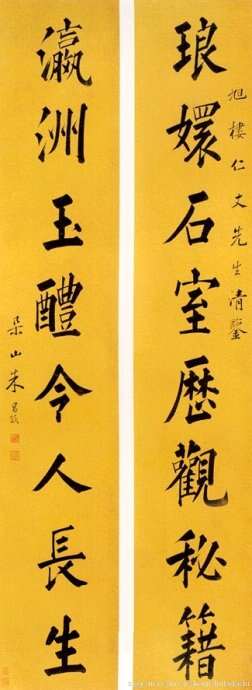 琅嬛石室歷觀秘籍
旭樓仁丈先生清鑒
瀛洲玉醴令人長生
朵山朱昌頤